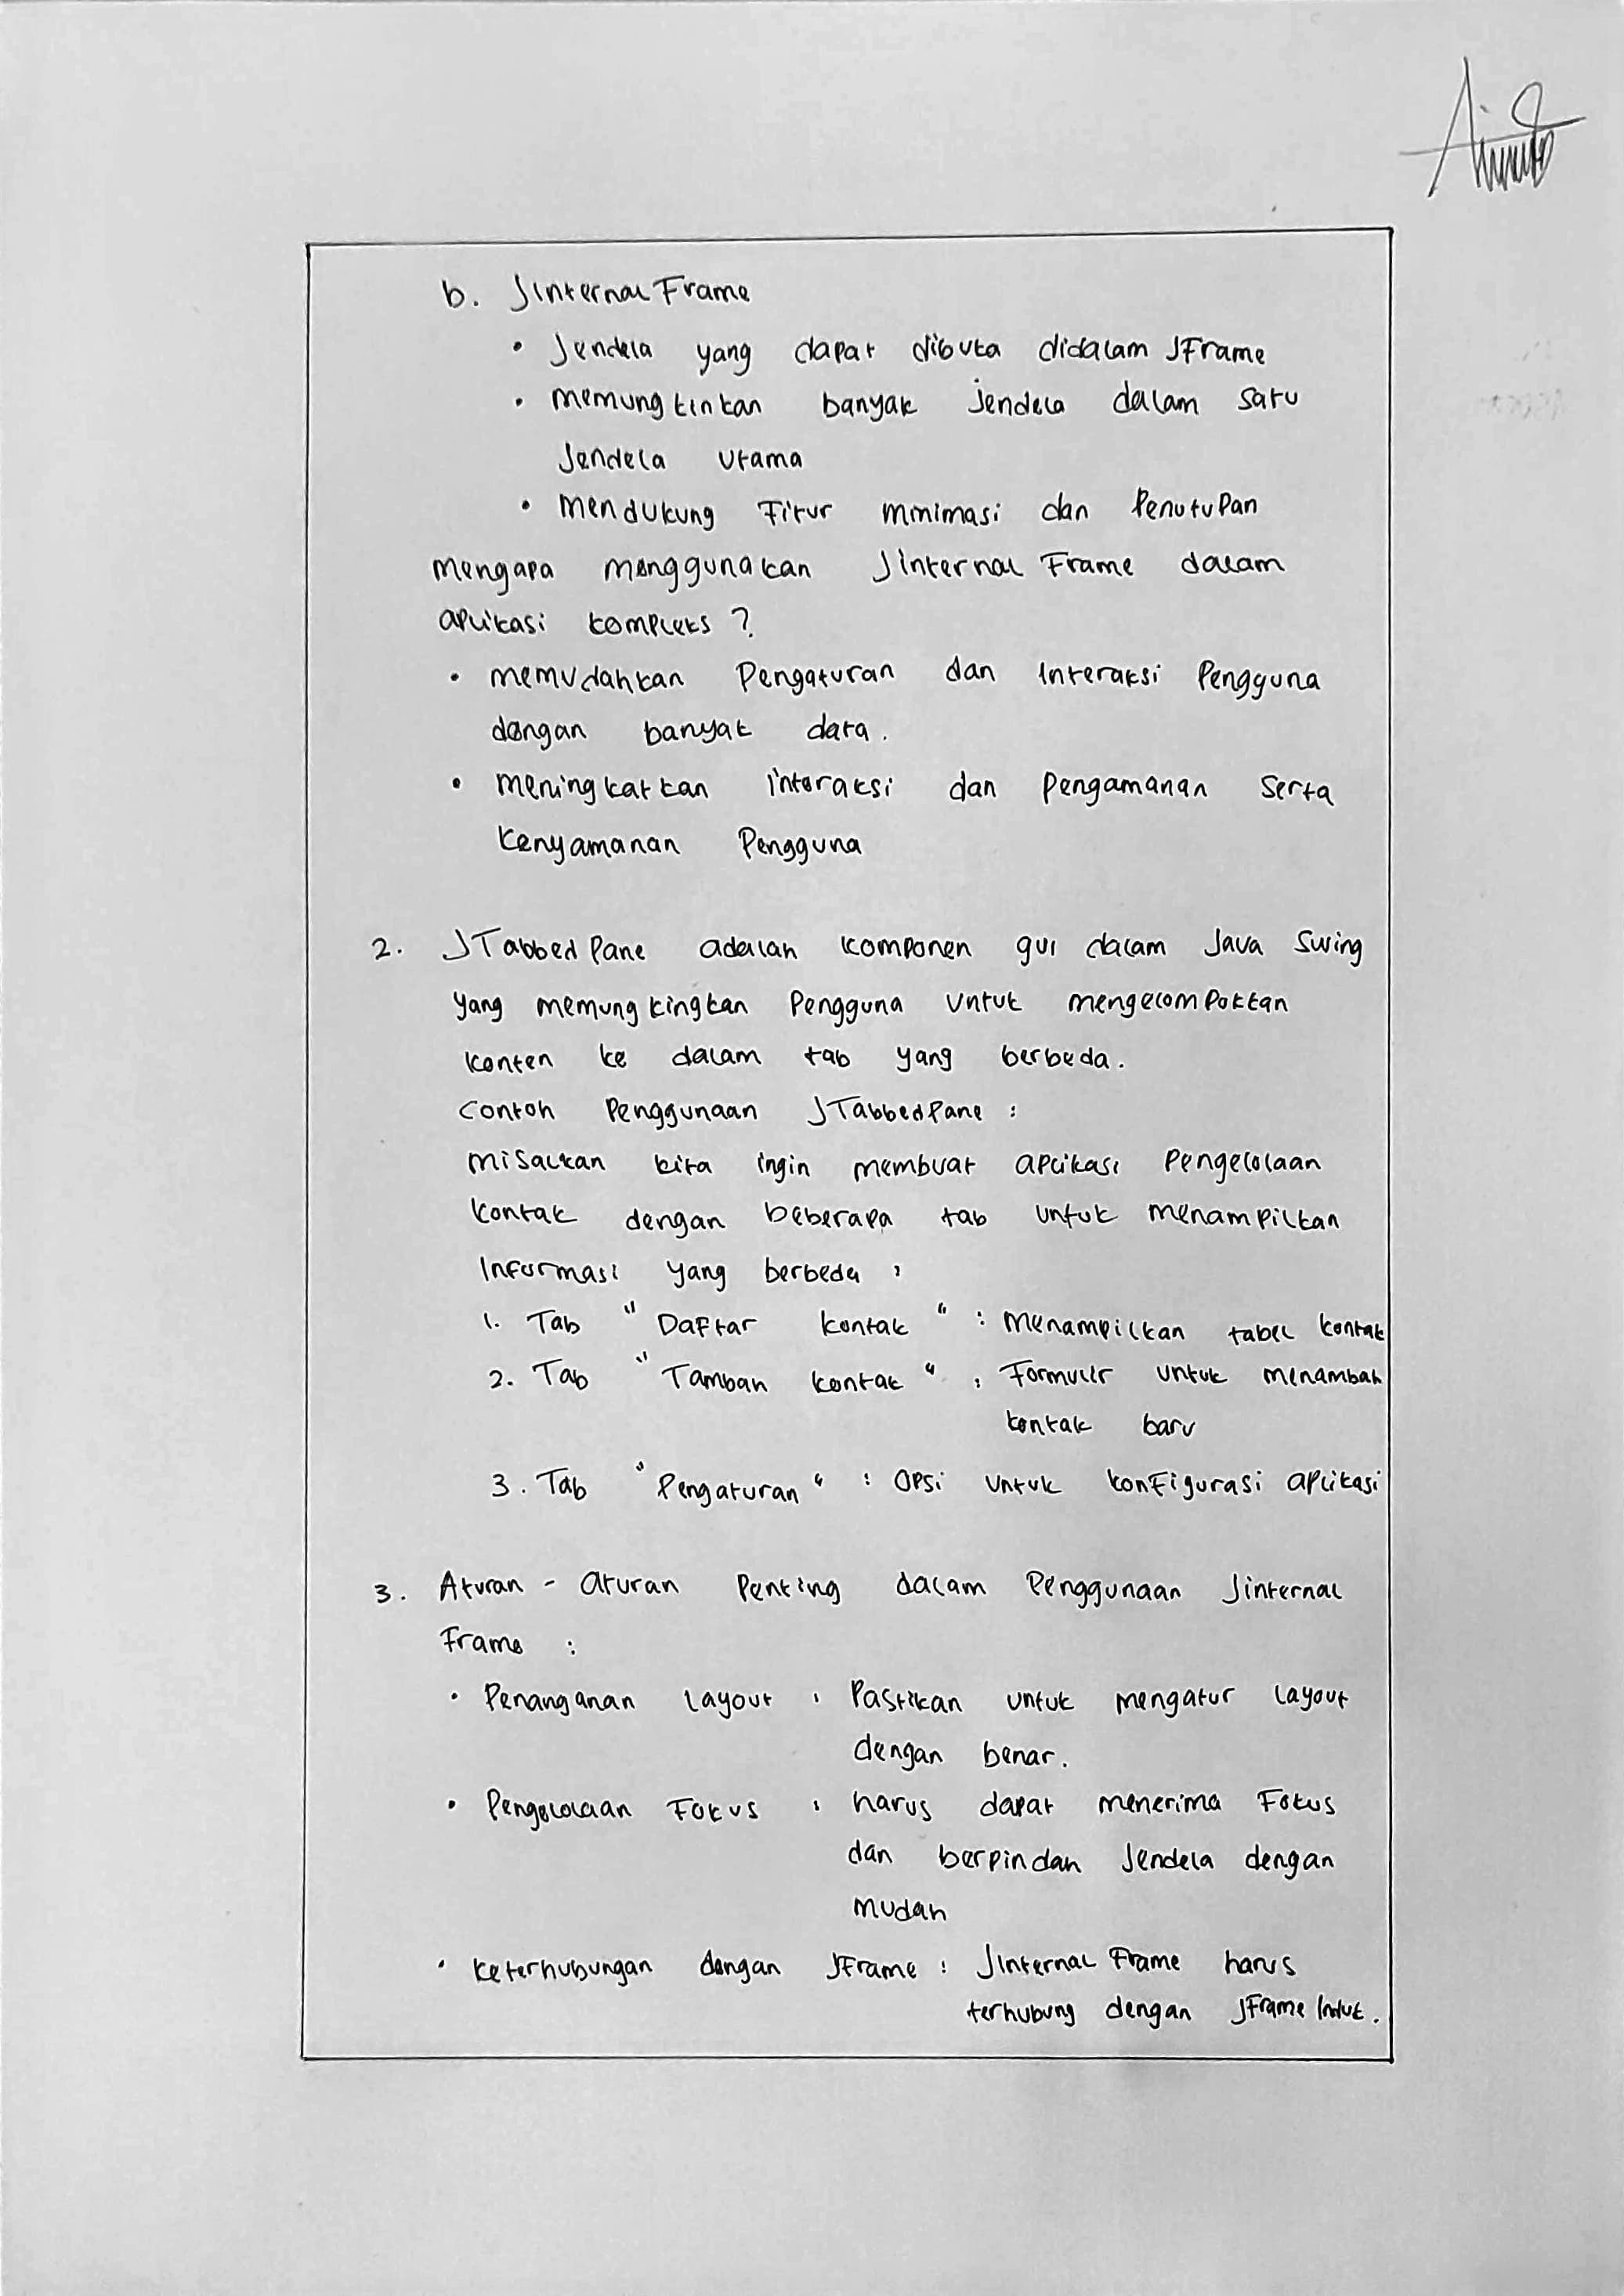 b. JInternal Frame
• Jendela yang dapat dibuka didalam JFrame
• memungkinkan banyak jendela dalam satu
Jendela utama
• mendukung Fitur minimasi dan Penutupan
mengapa menggunakan JInternal Frame dalam
aplikasi kompleks ?
• memudahkan Pengaturan dan Interaksi Pengguna
dengan banyak data.
• meningkatkan interaksi dan pengamanan serta
kenyamanan Pengguna
2. JTabbed Pane adalah komponen gui dalam Java Swing
yang memungkingkan Pengguna untuk mengelompokkan
konten ke dalam tab yang berbeda.
Contoh Penggunaan JTabbedPane :
misalkan kita ingin membuat aplikasi Pengelolaan
kontak dengan beberapa tab untuk menampilkan
Informasi yang berbeda :
1. Tab " Daftar kontak " : menampilkan tabel kontak
2. Tab " Tambah kontak " : Formulir untuk menambah
kontak baru
3. Tab " Pengaturan " : Opsi untuk konfigurasi aplikasi
3. Aturan - aturan Penting dalam Penggunaan Jinternal
Frame :
• Penanganan Layout : Pastikan untuk mengatur layout
dengan benar.
• Pengelolaan Fokus : harus dapat menerima Fokus
dan berpindah Jendela dengan
mudah
• keterhubungan dengan JFrame : JInternal Frame harus
terhubung dengan JFrame Induk.